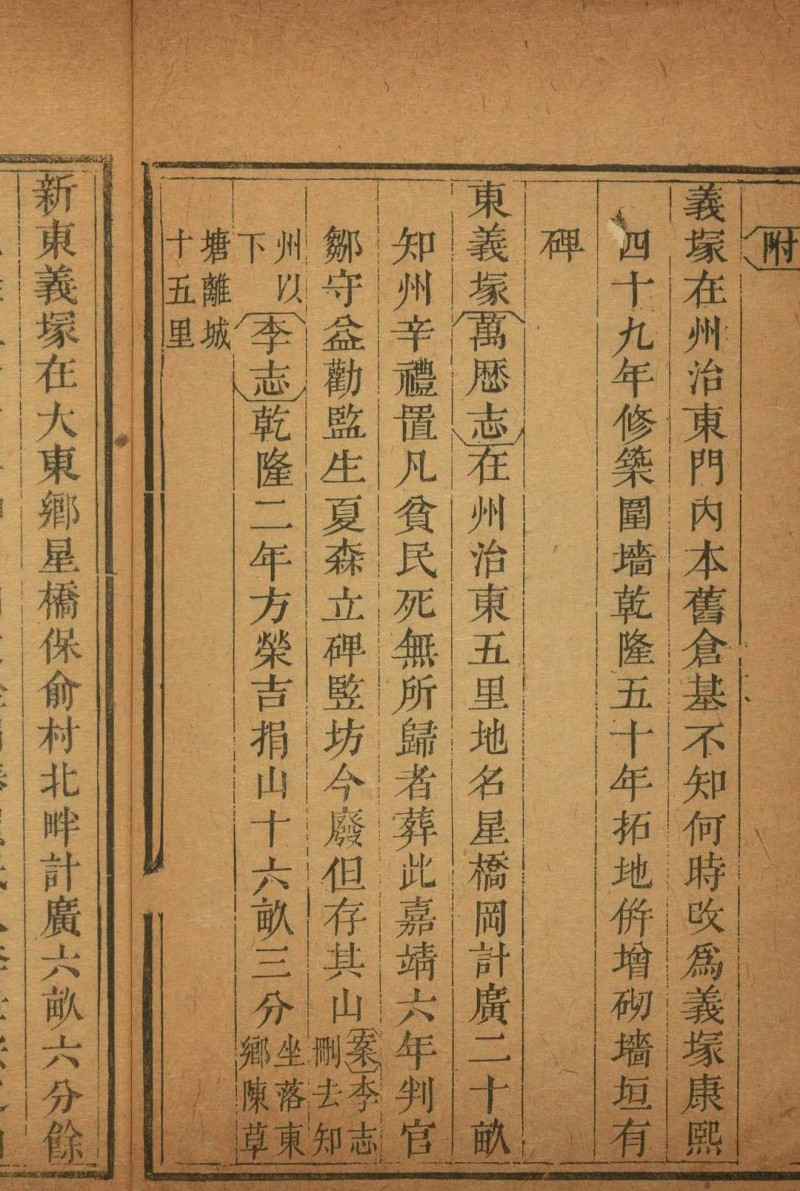 附
義塚在州治東門内本舊倉基不知何時改爲義塚康熙
四十九年修築圍墻乾隆五十年拓地併增砌墻垣有
碑
東義塚萬歴志在州治東五里地名星橋岡計廣二十畝
知州辛禮置凡貧民死無所歸者葬此嘉靖六年判官
鄒守益勸監生夏森立碑竪坊今廢但存其山案李志刪去知
州以下李志乾隆二年方榮吉捐山十六畝三分坐落東鄉陳草
塘離城十五里
新東義塚在大東鄉星橋保俞村北畔計廣六畝六分餘